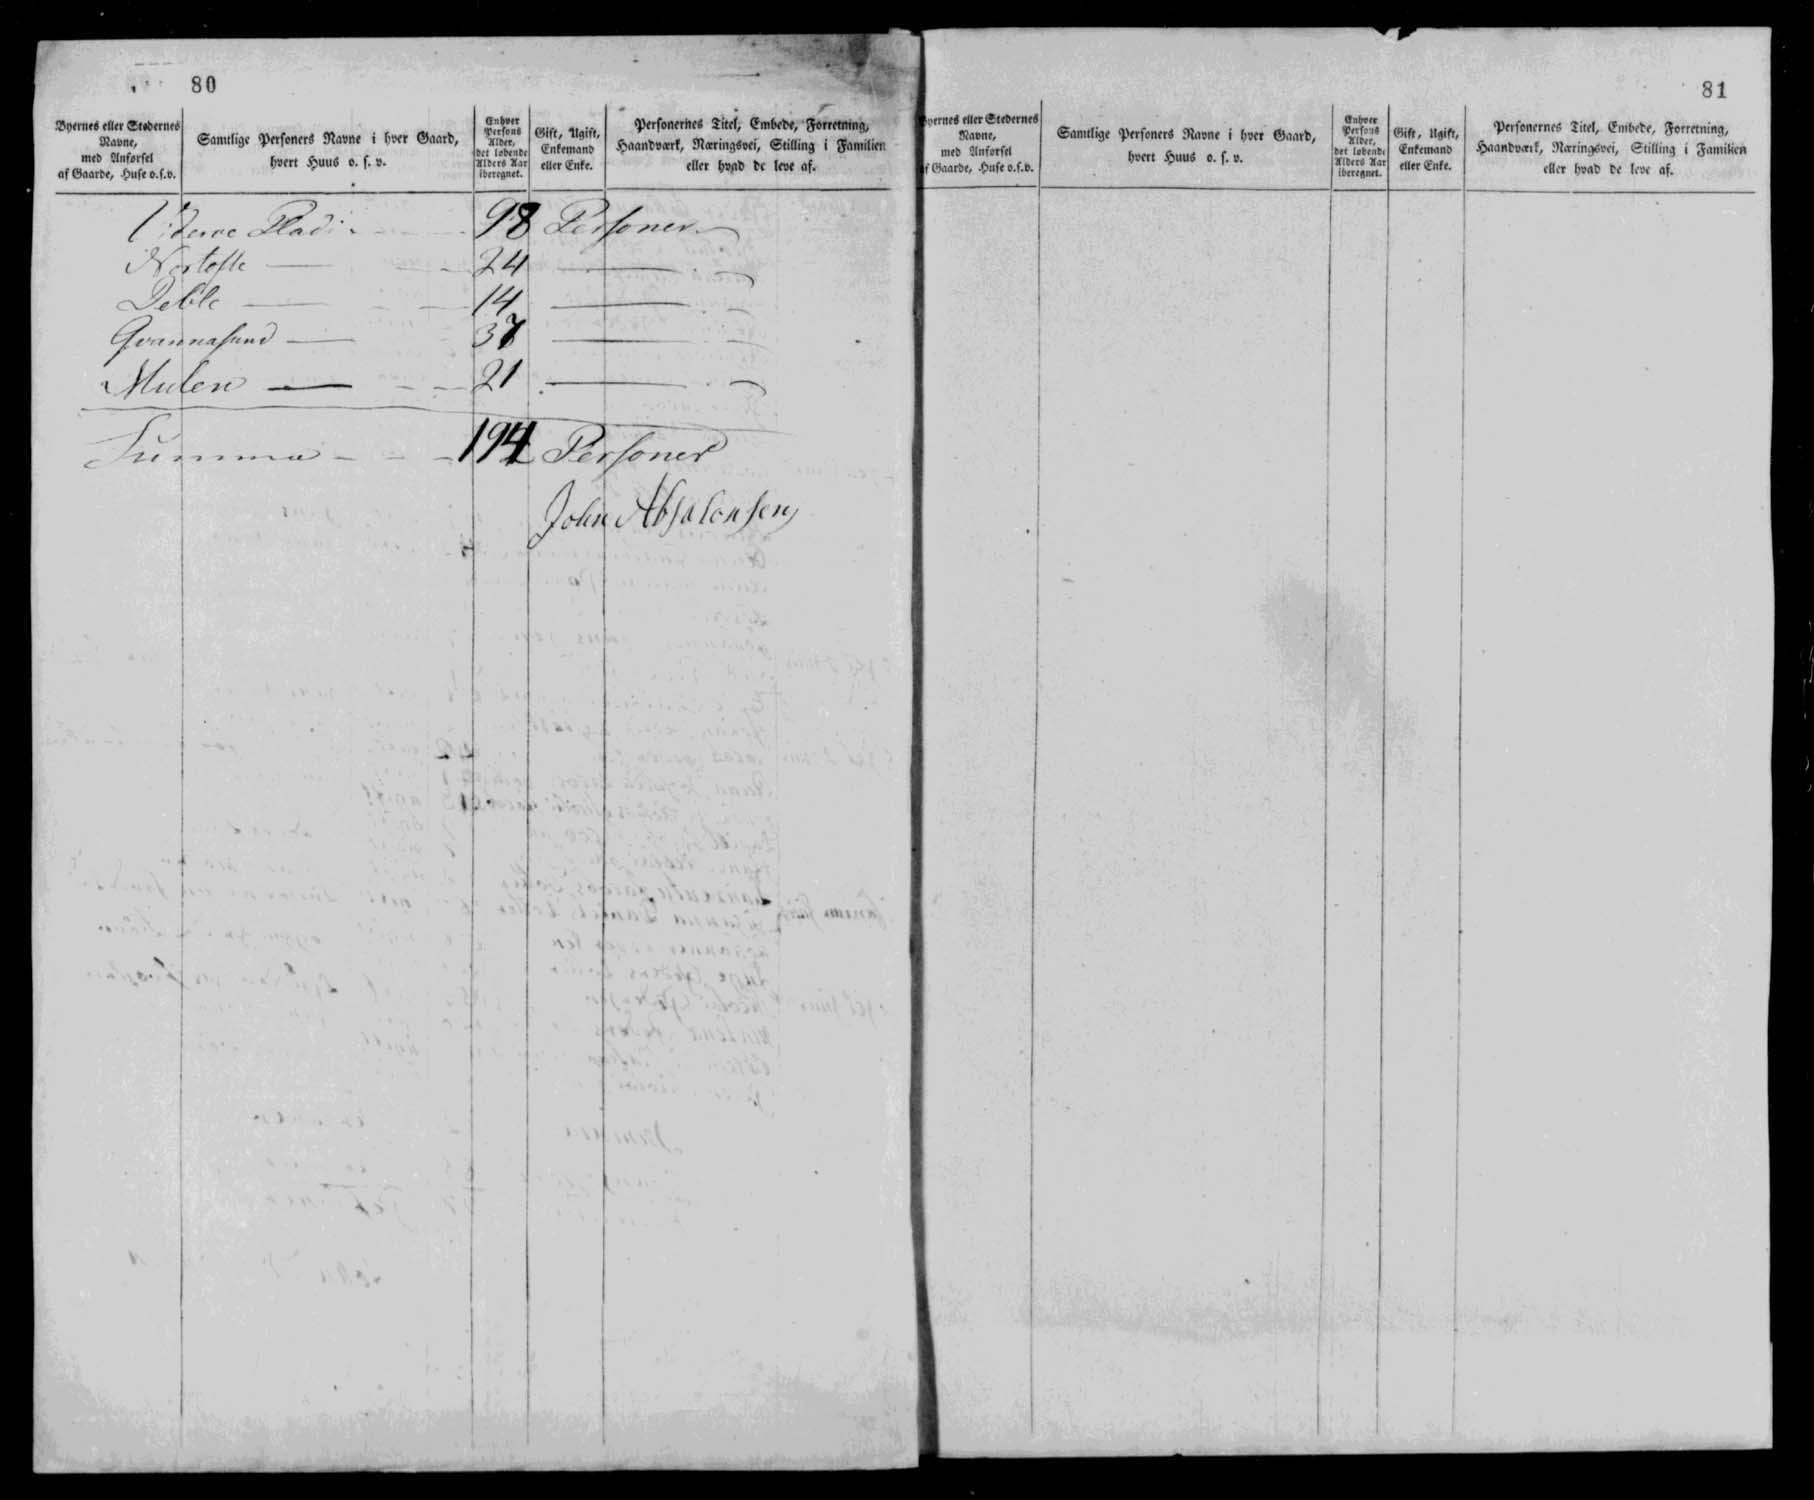 80
Byernes eller Stedernes
Navne,
med Anførsel
af Gaarde, Huse o.s.v.
Samtlige Personers Navne i hver Gaard,
hvert Huus o. s. v.
Enhver
Persons
Alder,
det løbende
Alders Aar
iberegnet.
Gift, Ugift,
Enkemand
eller Enke.
Personernes Titel, Embede, Forretning,
Haandværk, Næringsvei, Stilling i Familien
eller hvad de leve af.
98 Personer
Nortofte 24
Deble 14
Qvannasund 37
Mulen 21
Summa 194 Personer
John Absalonsen
81
Byernes eller Stedernes
Navne,
med Anførsel
af Gaarde, Huse o.s.v.
Samtlige Personers Navne i hver Gaard,
hvert Huus o. s. v.
Enhver
Persons
Alder,
det løbende
Alders Aar
iberegnet.
Gift, Ugift,
Enkemand
eller Enke.
Personernes Titel, Embede, Forretning,
Haandværk, Næringsvei, Stilling i Familien
eller hvad de leve af.